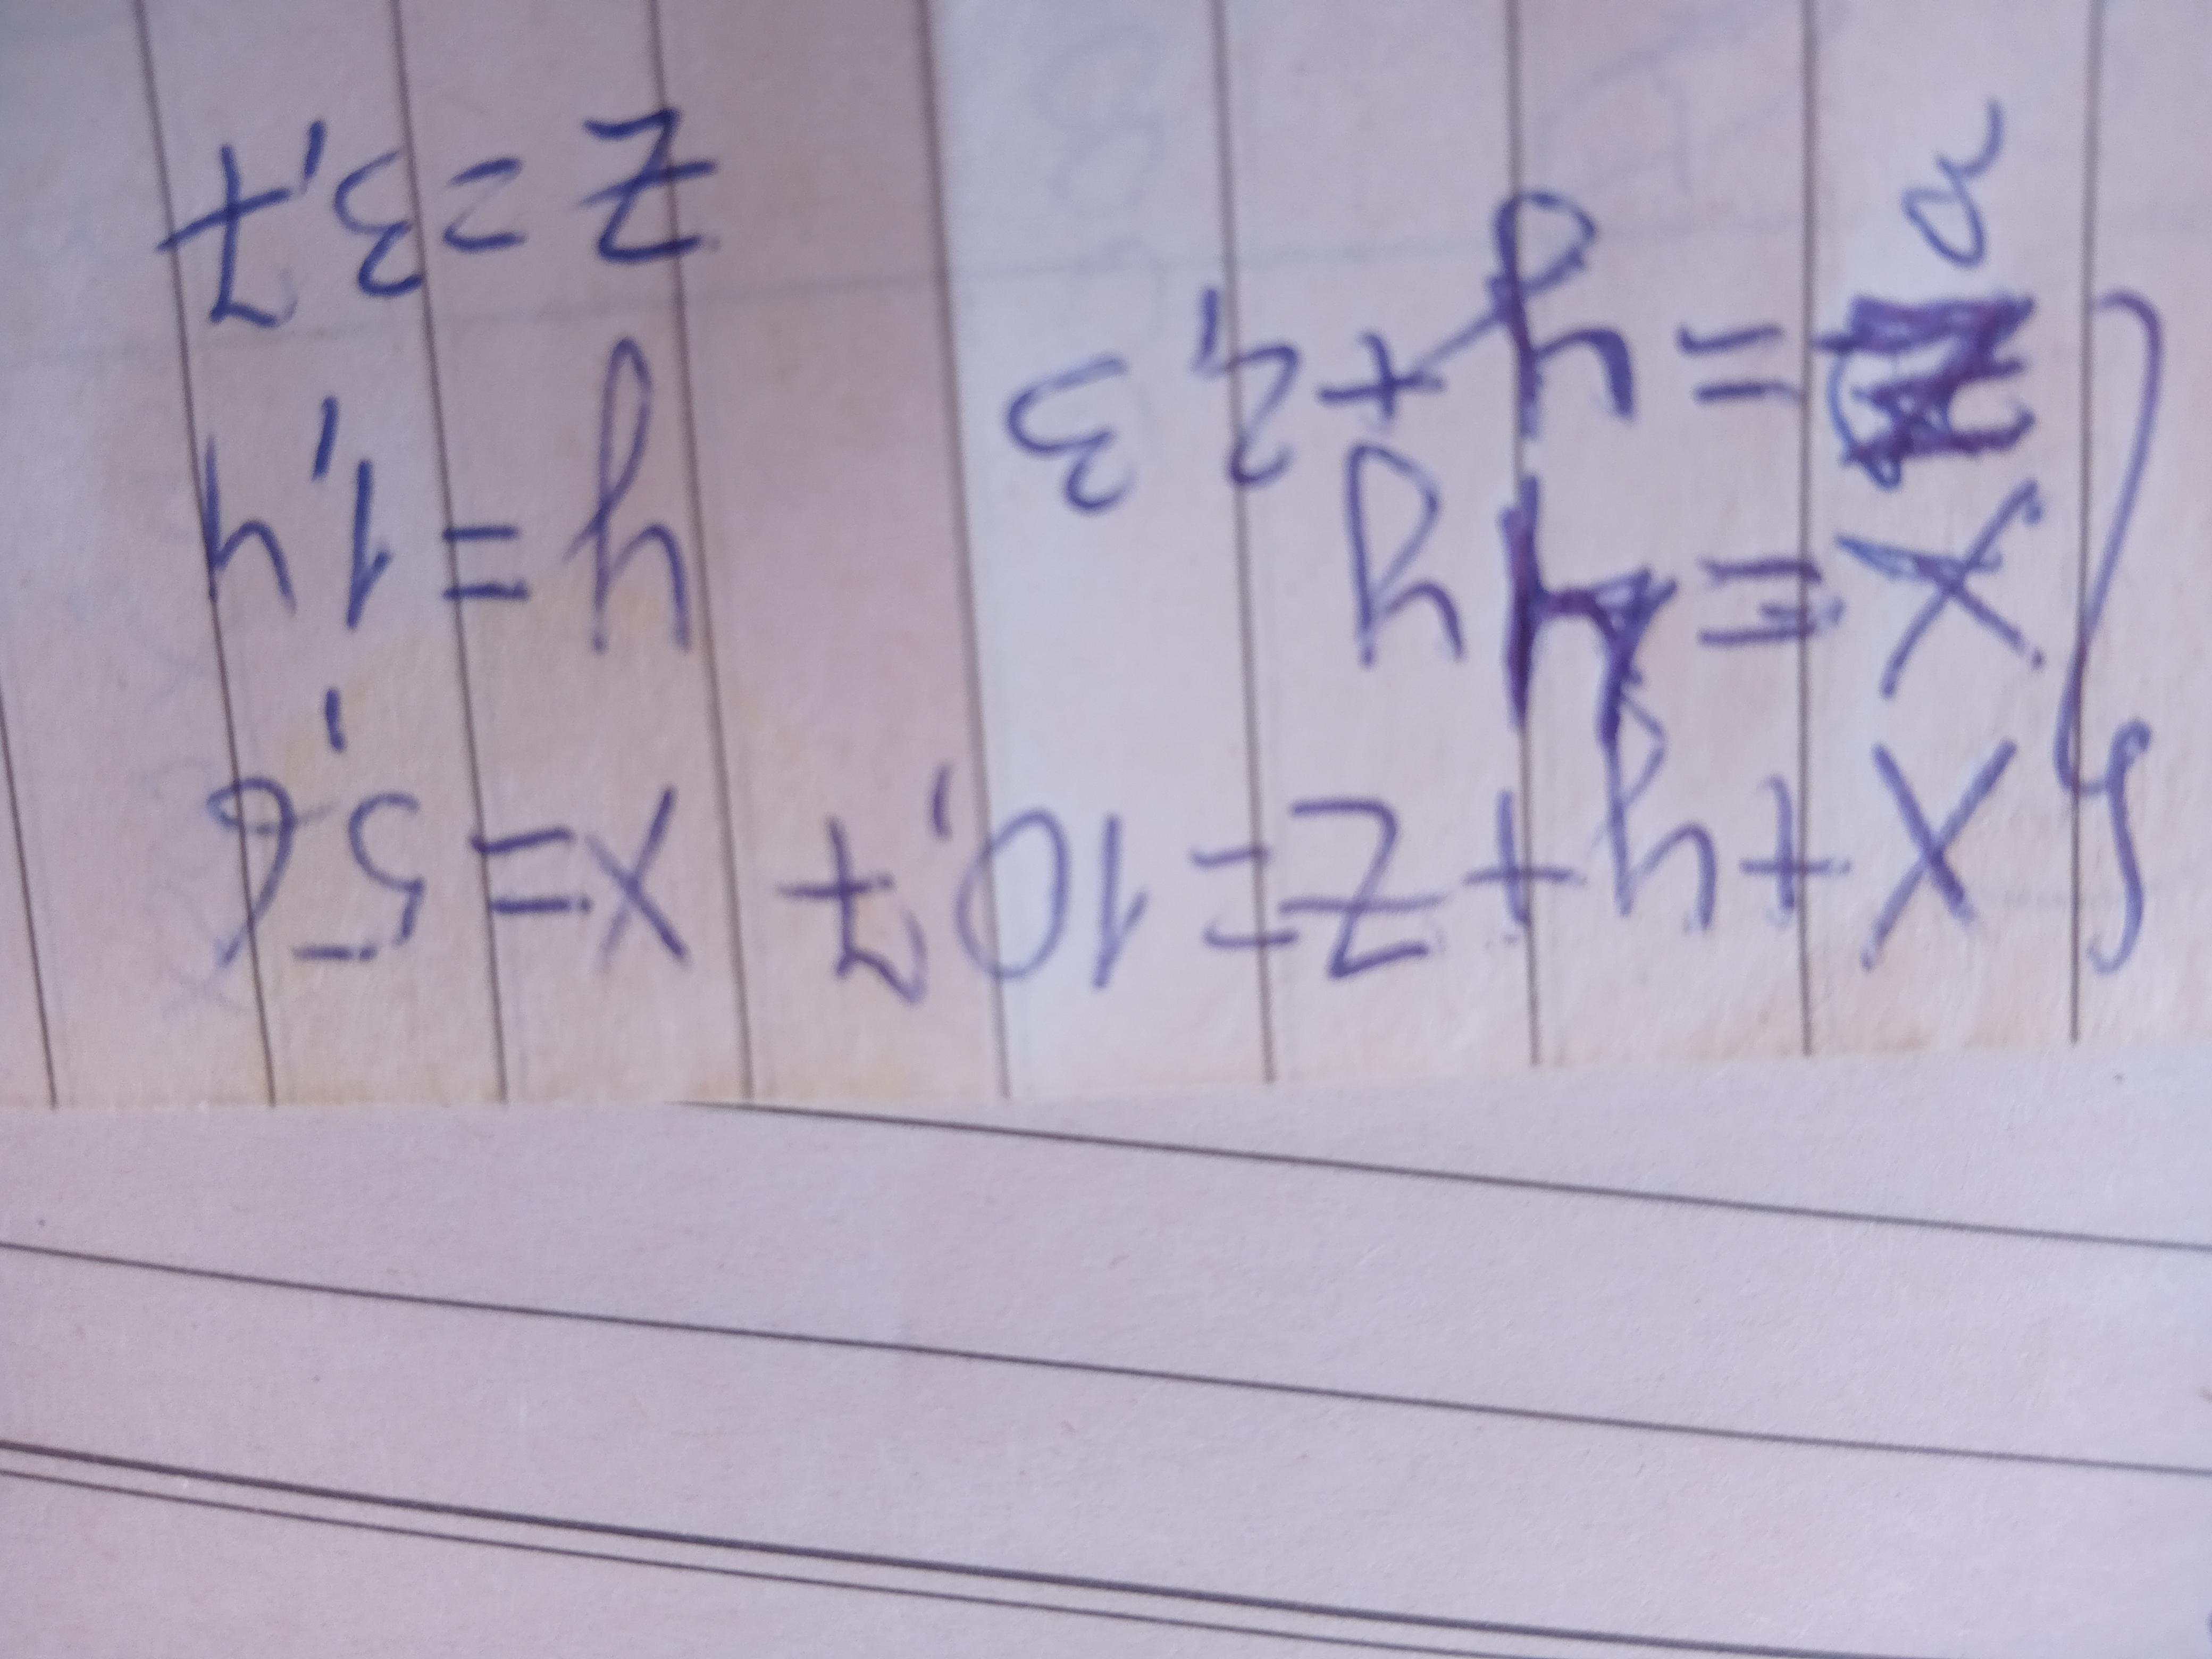 x+y+z=10,7 x=5,6
x=4y y=1,4
z=y+2,3 z=3,7